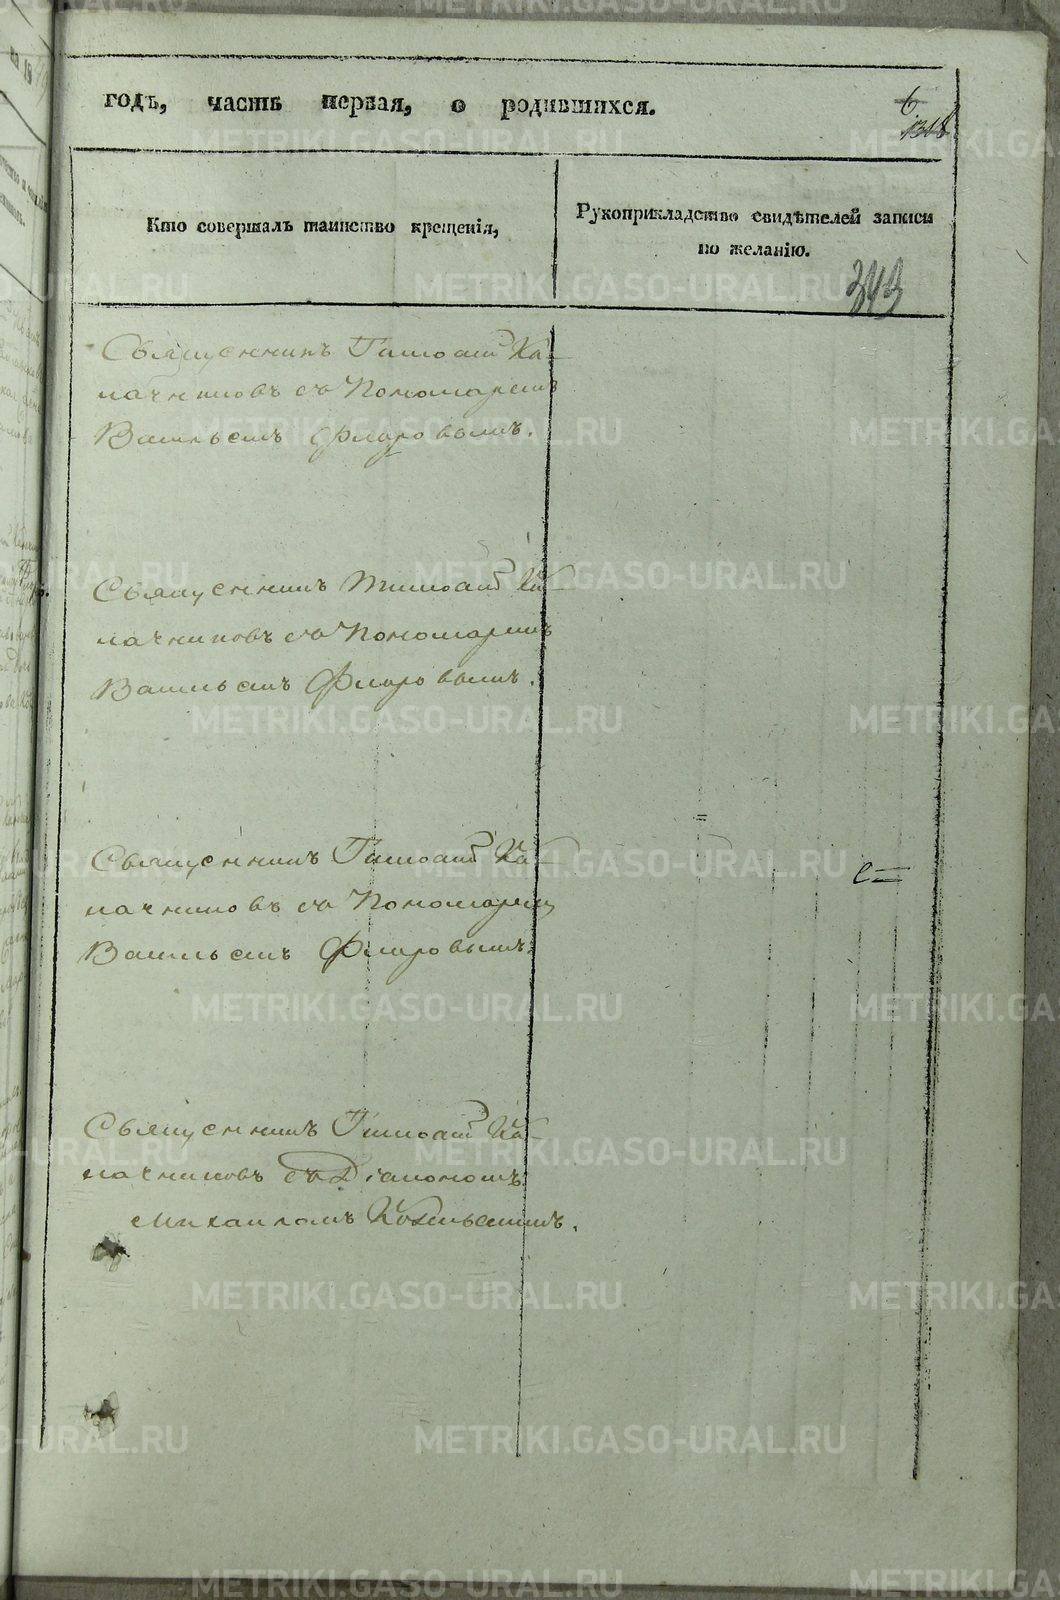 годъ, часть первая, о родившихся.
6
1308
Кто совершалъ таинство крещенія,
Рукоприкладство свидѣтелей записи
по желанію.
343
Священникъ Тимоѳей Ка-
лачниковъ съ Пономаремъ
Васильемъ Флоровымъ.
Священникъ Тимоѳей Ка-
лачниковъ съ Пономаремъ
Васильемъ Флоровымъ.
Священникъ Тимоѳей Ка-
лачниковъ съ Пономаремъ
Васильемъ Флоровымъ.
Священникъ Тимоѳей Ка-
лачниковъ съ Діакономъ
Михаиломъ
METRIKI.GASO-URAL.RU